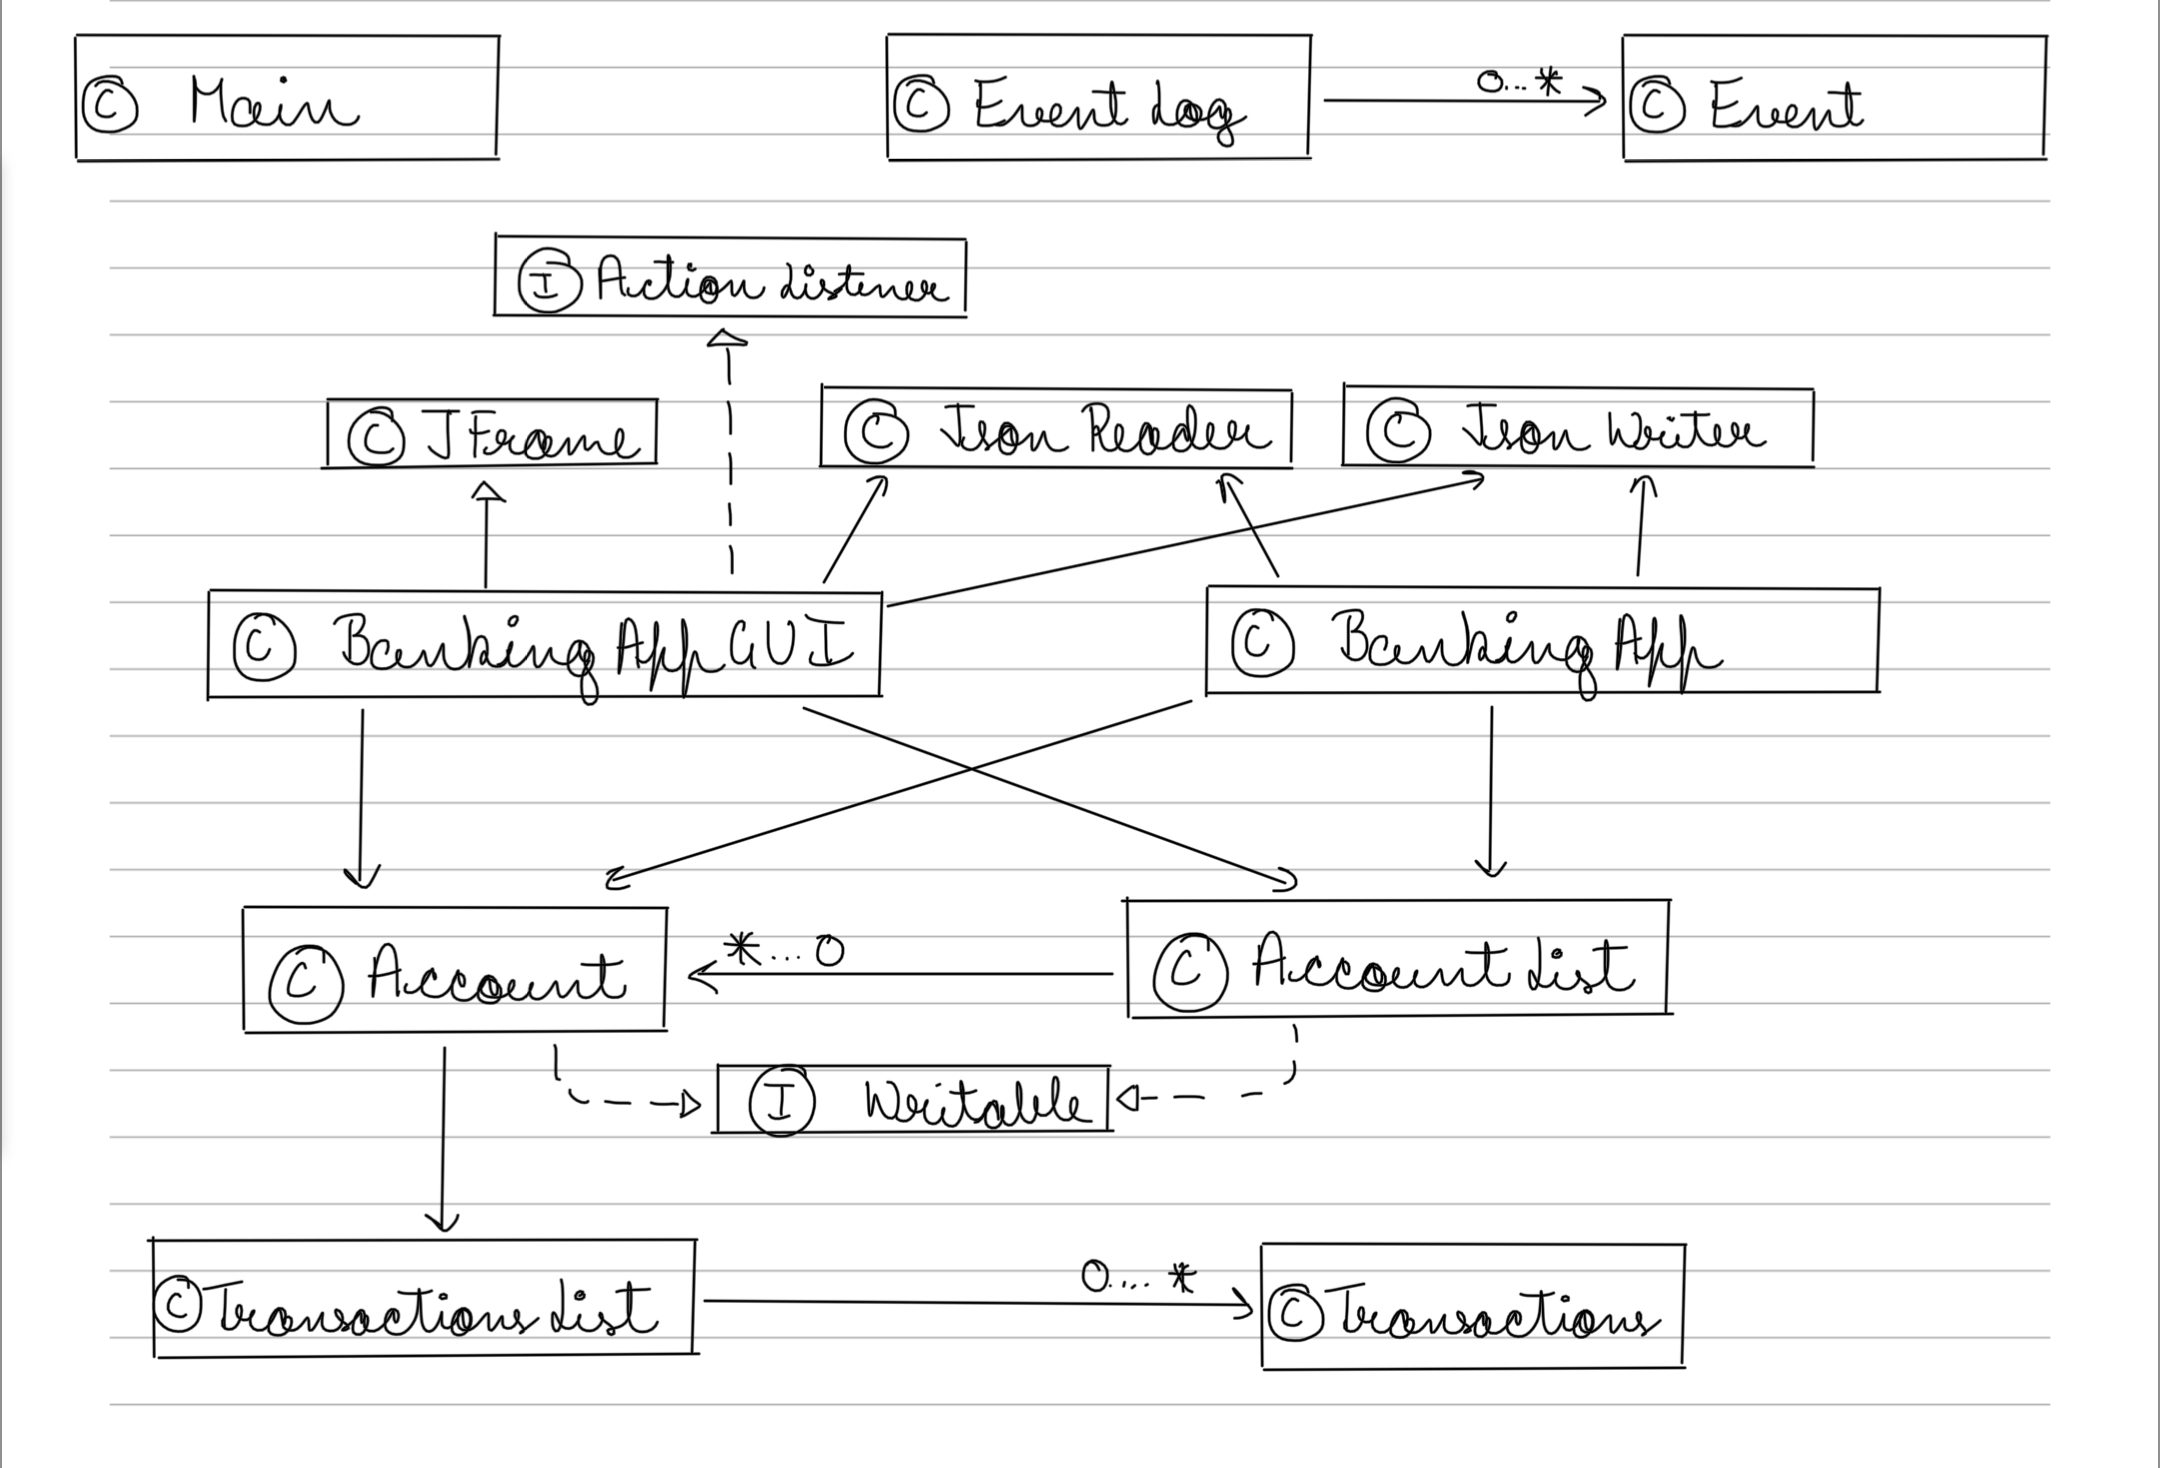 C Main
C Event Log
0...*
C Event
I Action Listener
C JFrame
C Json Reader
C Json Writer
C Banking App GUI
C Banking App
C Account
*...0
C Account List
I Writable
C Transactions List
0....*
C Transactions